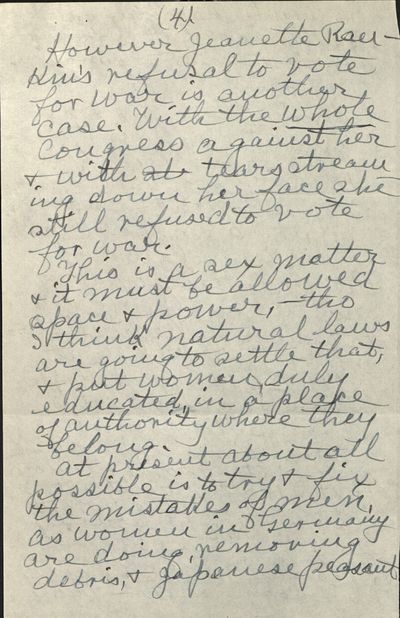 (4)
However Jeanette Ran-
kin's refusal to vote
for war is another
case. With the whole
Congress against her
& with tears stream
ing down her face she
still refused to vote
for war.
This is a sex matter
& it must be allowed
space & power, - tho
I think natural laws
are going to settle that,
& put women, duly
educated, in a place
of authority where they
belong.
At present about all
possible is to try & fix
the mistakes of men,
as women in Germany
are doing, removing
debris, & Japanese peasant